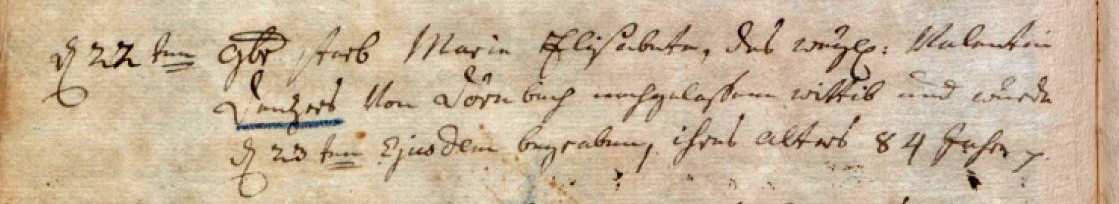 d 22ten 9br starb Maria Elisabeta, des weyl: Valentin
Dentzers Von Dörnbach nachgelaßene wittib und wurde
d 23ten Ejusdem begraben, ihres alters 84 Jahr